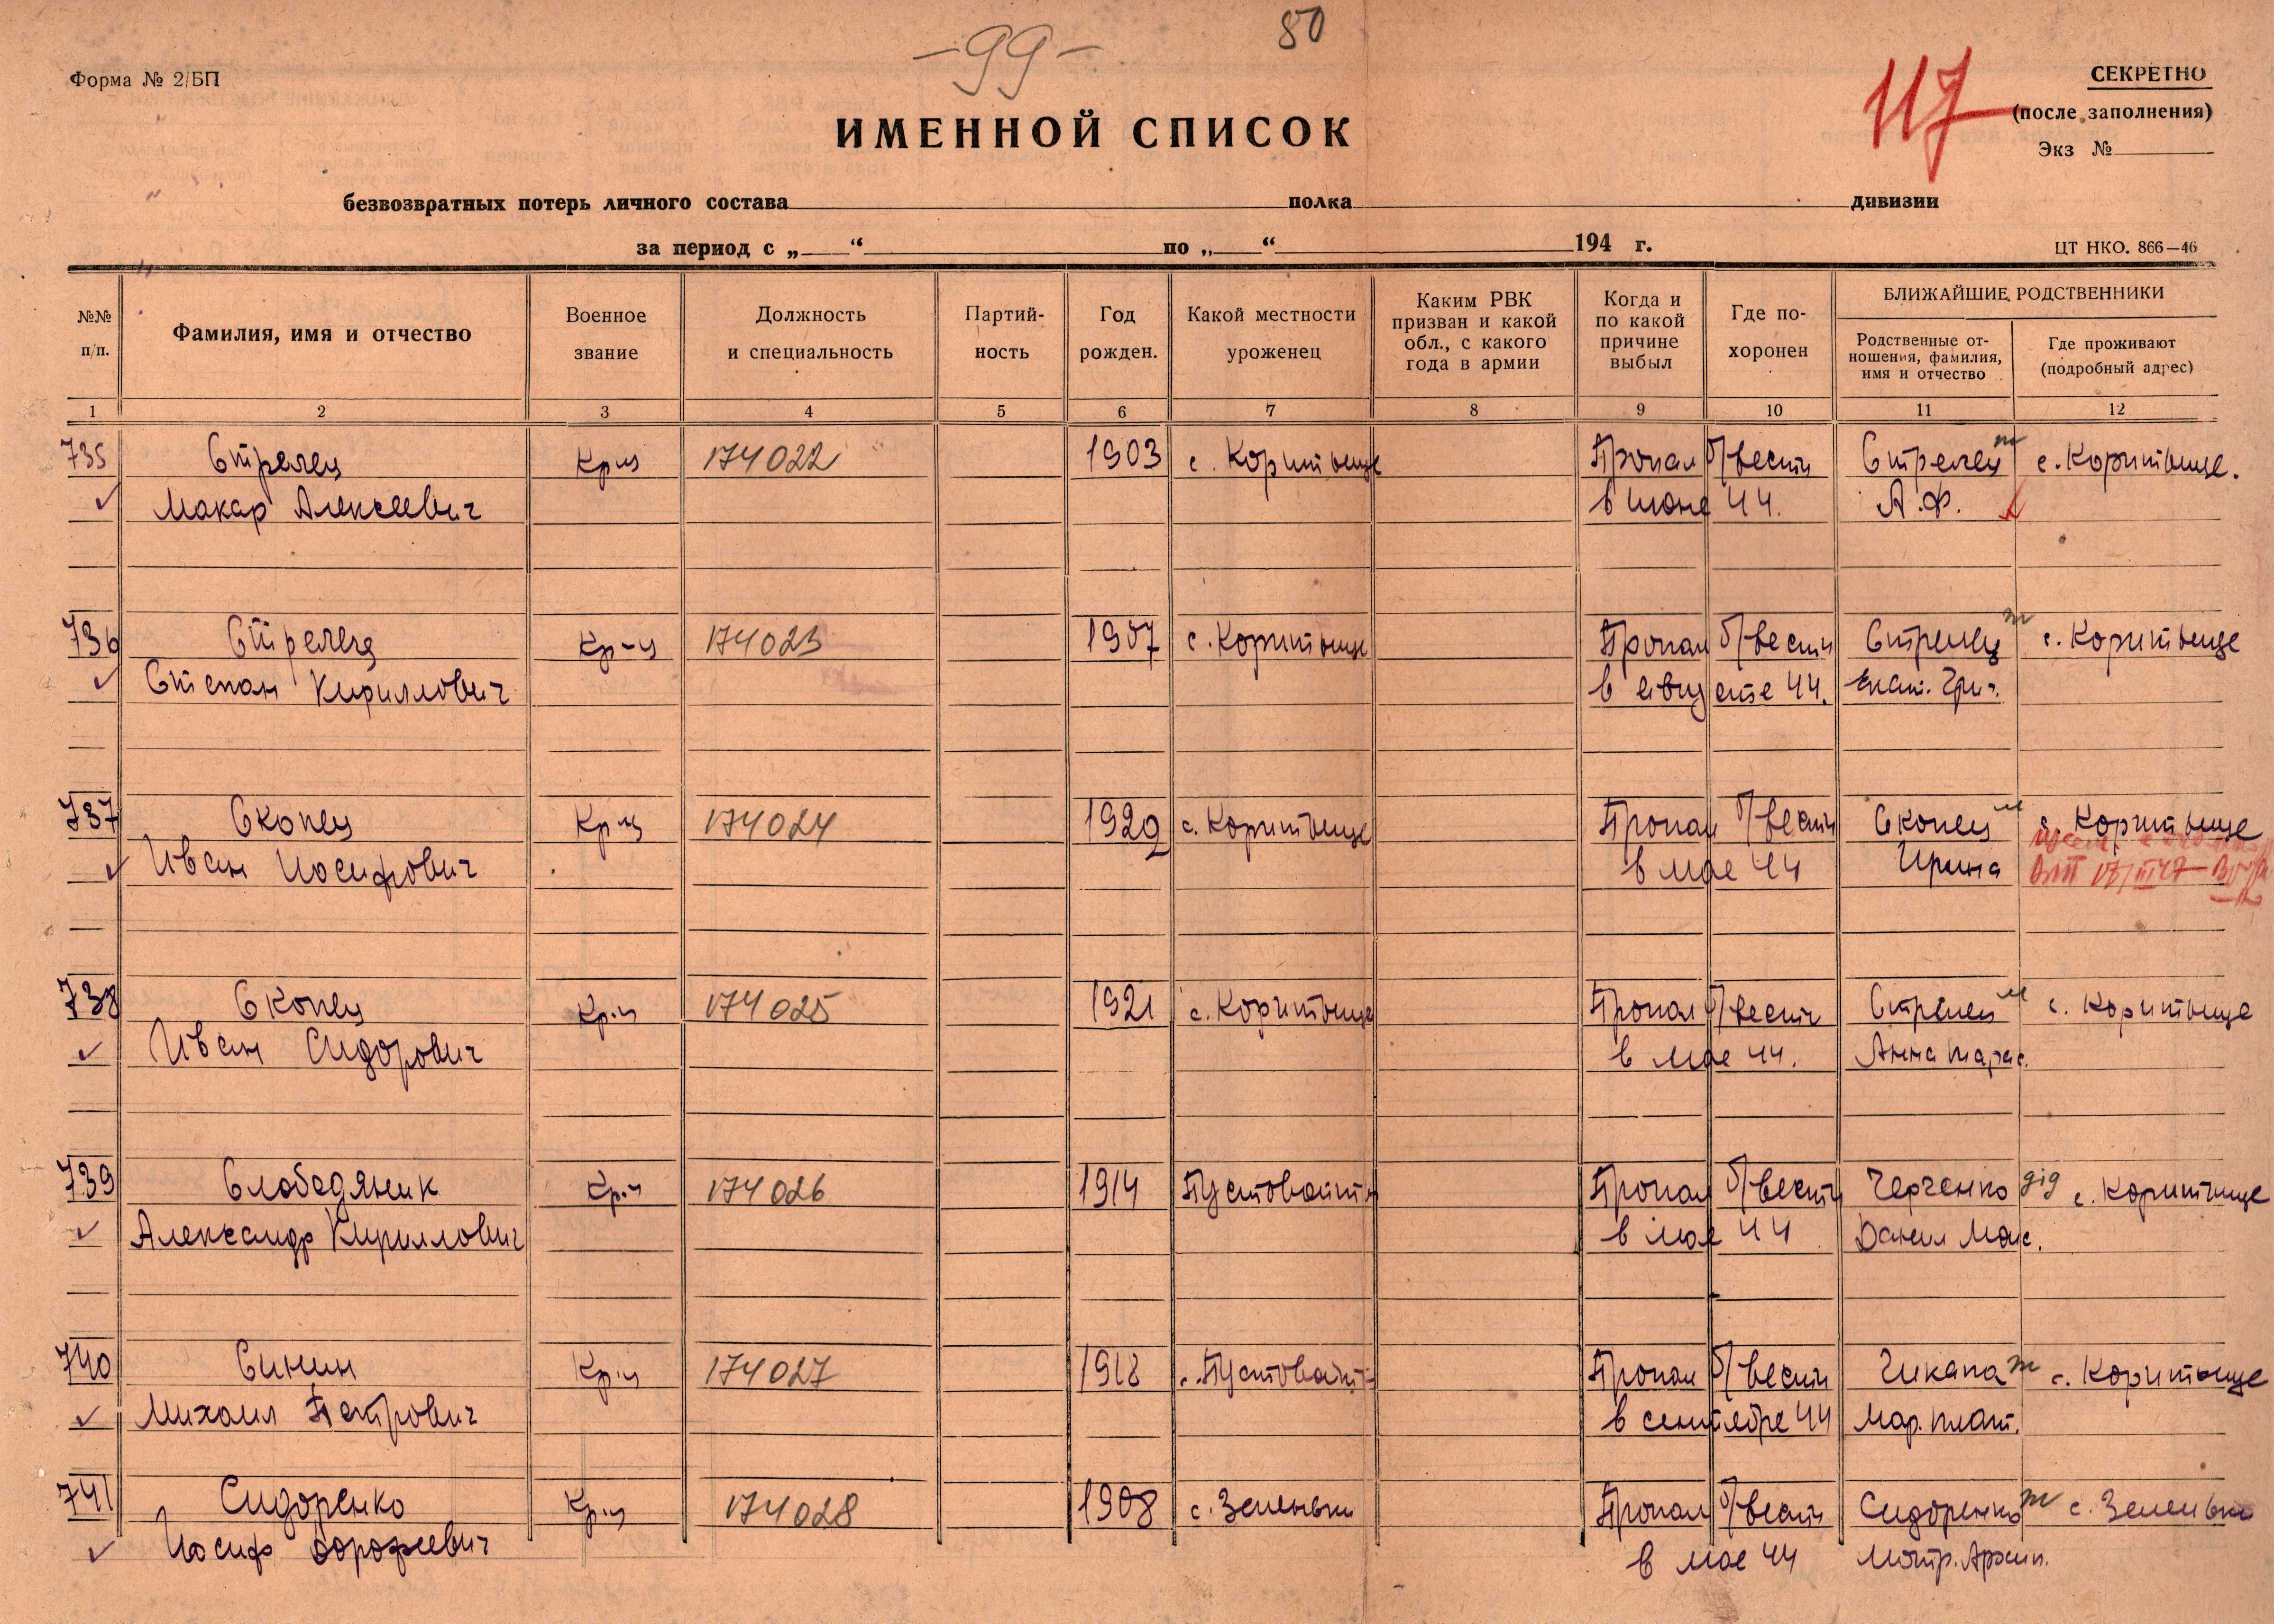 -99-
80
117
Форма № 2/БП
СЕКРЕТНО
(после заполнения)
Экз №
ИМЕННОЙ СПИСОК
безвозвратных потерь личного состава полка дивизии
за период с „ “ по „ “ 194 г.
ЦТ НКО. 866—46
№№ п/п.
Фамилия, имя и отчество
Военное звание
Должность и специальность
Партий-ность
Год рожден.
Какой местности уроженец
Каким РВК призван и какой обл., с какого года в армии
Когда и по какой причине выбыл
Где по-хоронен
БЛИЖАЙШИЕ РОДСТВЕННИКИ
Родственные от-ношения, фамилия, имя и отчество
Где проживают (подробный адрес)
1 2 3 4 5 6 7 8 9 10 11 12
735 Стрелец Кр-ц 174022 1903 с. Коритыще Пропал б/вести Стрелец ж с. Коритыще.
Макар Алексеевич в июне 44. А.Ф.
736 Стрелец Кр-ц 174023 1907 с. Коритыще Пропал б/вести Стрелец ж с. Коритыще
Степан Кириллович в августе 44. Екат. Григ.
737 Скопец Кр-ц 174024 1920 с. Коритыще Пропал б/вести Скопец м с. Коритыще
Иван Иосифович в мае 44 Ирина
17/III 47
738 Скопец Кр-ц 174025 1921 с. Коритыще Пропал б/вести Стрелец м с. Коритыще
Иван Сидорович в мае 44. Анна Тарас.
739 Слободяник Кр-ц 174026 1914 Пропал б/вести Черченко дід с. Коритыще
Александр Кириллович в мае 44 Данил Макс.
740 Синин Кр-ц 174027 1918 Пропал б/вести Чикала ж с. Коритыще
Михаил Петрович в сентябре 44 Мар. Плат.
741 Сидоренко Кр-ц 174028 1908 с. Зеленьки Пропал б/вести Сидоренко ж с. Зеленьки
Иосиф Дорофеевич в мае 44 Мотр. Архип.